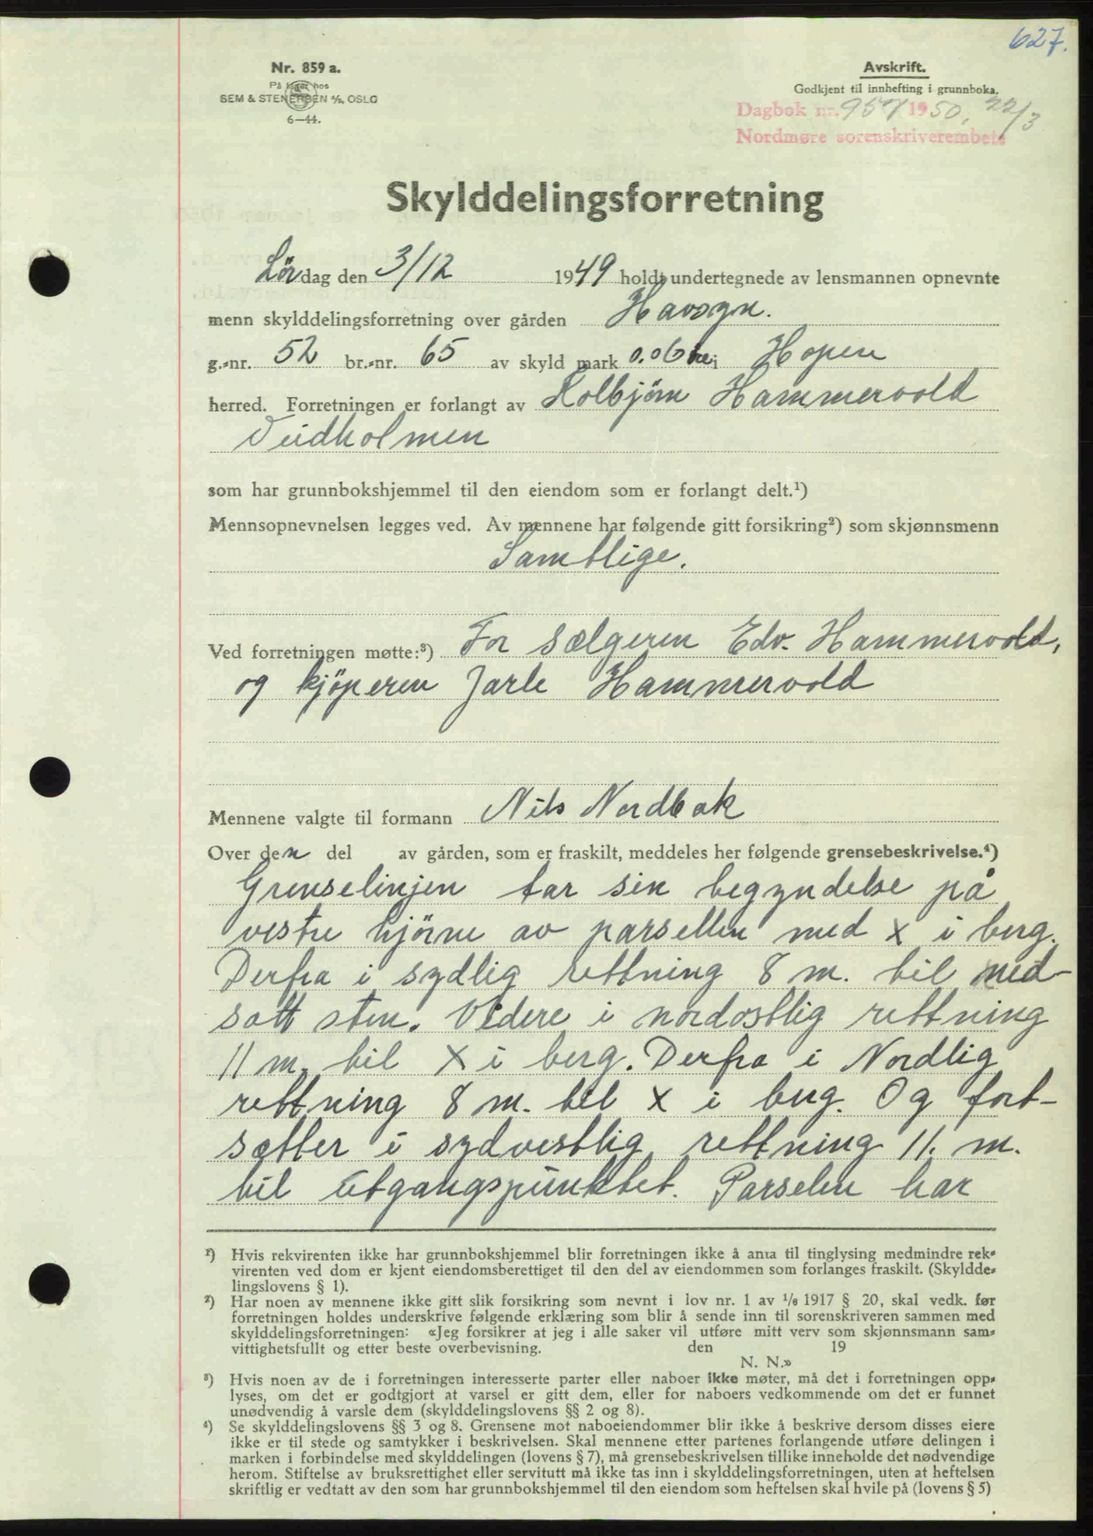 627.
Nr. 859 a.
På lager hos
SEM & STENERSEN A/S, OSLO
6—44.
Avskrift.
Godkjent til innhefting i grunnboka.
Dagbok nr. 957 1950, 22/3
Nordmøre sorenskriverembete
Skylddelingsforretning
Lördag den 3/12 1949 holdt undertegnede av lensmannen opnevnte
menn skylddelingsforretning over gården Havsyn.
g.-nr. 52 br.-nr. 65 av skyld mark 0.06 i Hopen
herred. Forretningen er forlangt av Kolbjörn Hammervold
Veidholmen
som har grunnbokshjemmel til den eiendom som er forlangt delt.¹)
Mennsopnevnelsen legges ved. Av mennene har følgende gitt forsikring²) som skjønnsmenn
Samtlige.
Ved forretningen møtte:³) For sælgeren Edv. Hammervold,
og kjöperen Jarle Hammervold
Mennene valgte til formann Nils Nordbak
Over den del av gården, som er fraskilt, meddeles her følgende grensebeskrivelse.⁴)
Grenselinjen tar sin begyndelse på
vestre hjörne av parsellen med x i berg.
Derfra i sydlig rettning 8 m. til ned-
satt sten. Videre i nordostlig rettning
11 m. til x i berg. Derfra i Nordlig
rettning 8 m. til x i berg. Og fort-
sætter i sydvestlig rettning 11. m.
til utgangspunktet. Parselen har
¹) Hvis rekvirenten ikke har grunnbokshjemmel blir forretningen ikke å anta til tinglysing medmindre rek-
virenten ved dom er kjent eiendomsberettiget til den del av eiendommen som forlanges fraskilt. (Skyldde-
lingslovens § 1).
²) Har noen av mennene ikke gitt slik forsikring som nevnt i lov nr. 1 av 1/6 1917 § 20, skal vedk. før
forretningen holdes underskrive følgende erklæring som blir å sende inn til sorenskriveren sammen med
skylddelingsforretningen: «Jeg forsikrer at jeg i alle saker vil utføre mitt verv som skjønnsmann sam-
vittighetsfullt og etter beste overbevisning. den 19
N. N.»
³) Hvis noen av de i forretningen interesserte parter eller naboer ikke møter, må det i forretningen opp-
lyses, om det er godtgjort at varsel er gitt dem, eller for naboers vedkommende om det er funnet
unødvendig å varsle dem (skylddelingslovens §§ 2 og 8).
⁴) Se skylddelingslovens §§ 3 og 8. Grensene mot naboeiendommer blir ikke å beskrive dersom disses eiere
ikke er til stede og samtykker i beskrivelsen. Skal mennene etter partenes forlangende utføre delingen i
marken i forbindelse med skylddelingen (lovens § 7), må grensebeskrivelsen tillike inneholde det nødvendige
herom. Stiftelse av bruksrettighet eller servitutt må ikke tas inn i skylddelingsforretningen, uten at heftelsen
skriftlig er vedtatt av den som har grunnbokshjemmel til den eiendom som heftelsen skal hvile på (lovens § 5)